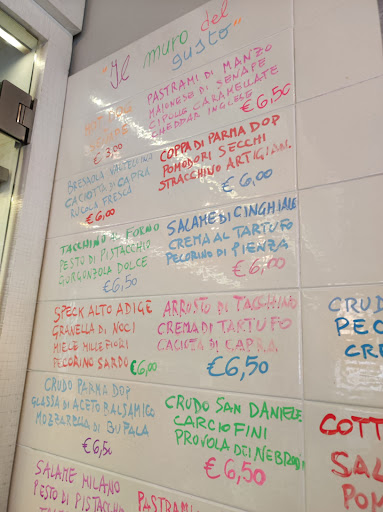 "Il muro del gusto"
HOT DOG
€ 3,00
PASTRAMI DI MANZO
MAIONESE DI SENAPE
CIPOLLE CARAMELLATE
CHEDDAR INGLESE
€ 6,50
BRESAOLA VALTELLINA
CACIOTTA DI CAPRA
RUCOLA FRESCA
€ 6,00
COPPA DI PARMA DOP
POMODORI SECCHI
STRACCHINO ARTIGIAN.
€ 6,00
TACCHINO AL FORNO
PESTO DI PISTACCHIO
GORGONZOLA DOLCE
€6,50
SALAME DI CINGHIALE
CREMA AL TARTUFO
PECORINO DI PIENZA
€ 6,00
SPECK ALTO ADIGE
GRANELLA DI NOCI
MIELE MILLEFIORI
PECORINO SARDO €6,00
ARROSTO DI TACCHINO
CREMA DI TARTUFO
CACIOTTA DI CAPRA
€6,50
CRUDO PARMA DOP
GLASSA DI ACETO BALSAMICO
MOZZARELLA DI BUFALA
€6,50
CRUDO SAN DANIELE
CARCIOFINI
PROVOLA DEI NEBRODI
€6,50
CRUD
PEC
CRE
SALAME MILANO
PESTO DI PISTACCHIO
PASTRAMI
COTT
SAL
POM